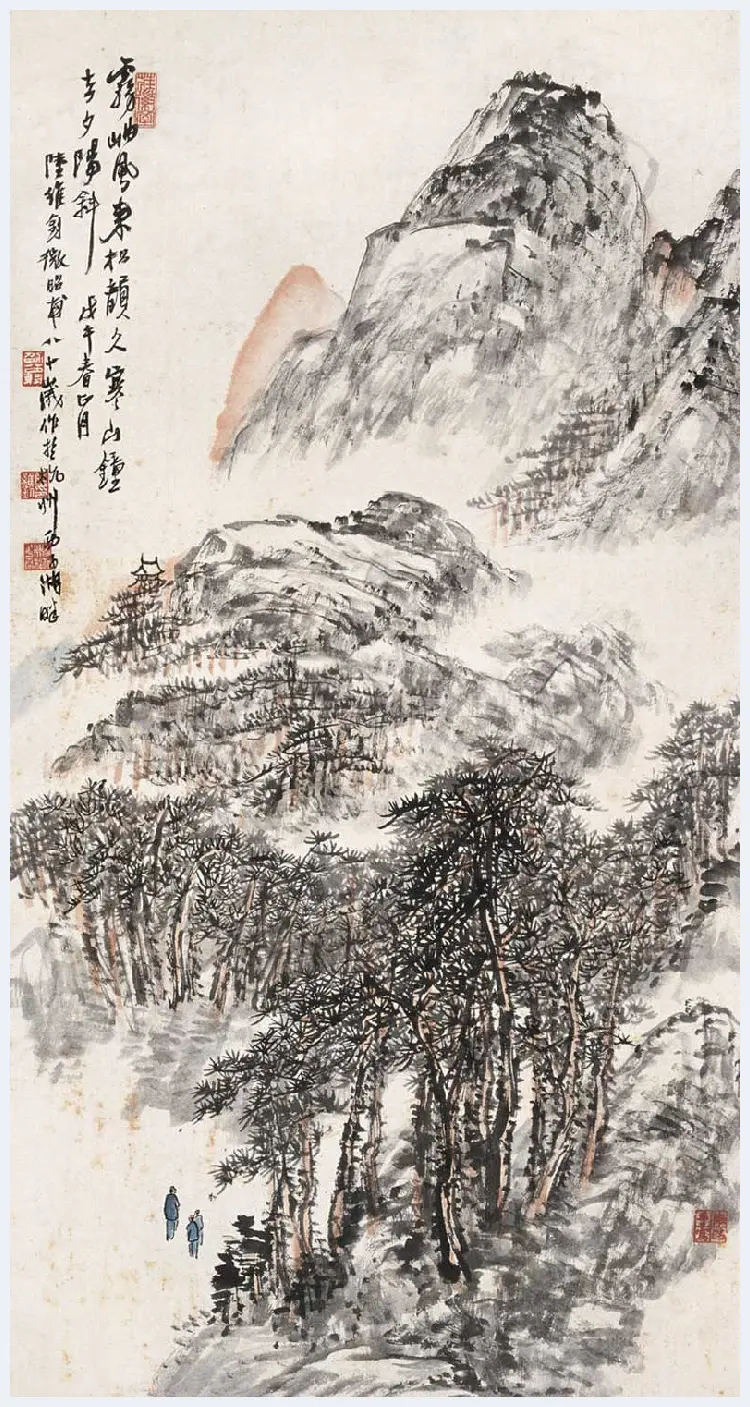 霧岫風來松韻久寒山鐘
去夕陽斜 戊午春正月
陸維釗微昭甫八十歲作於杭州西子湖畔